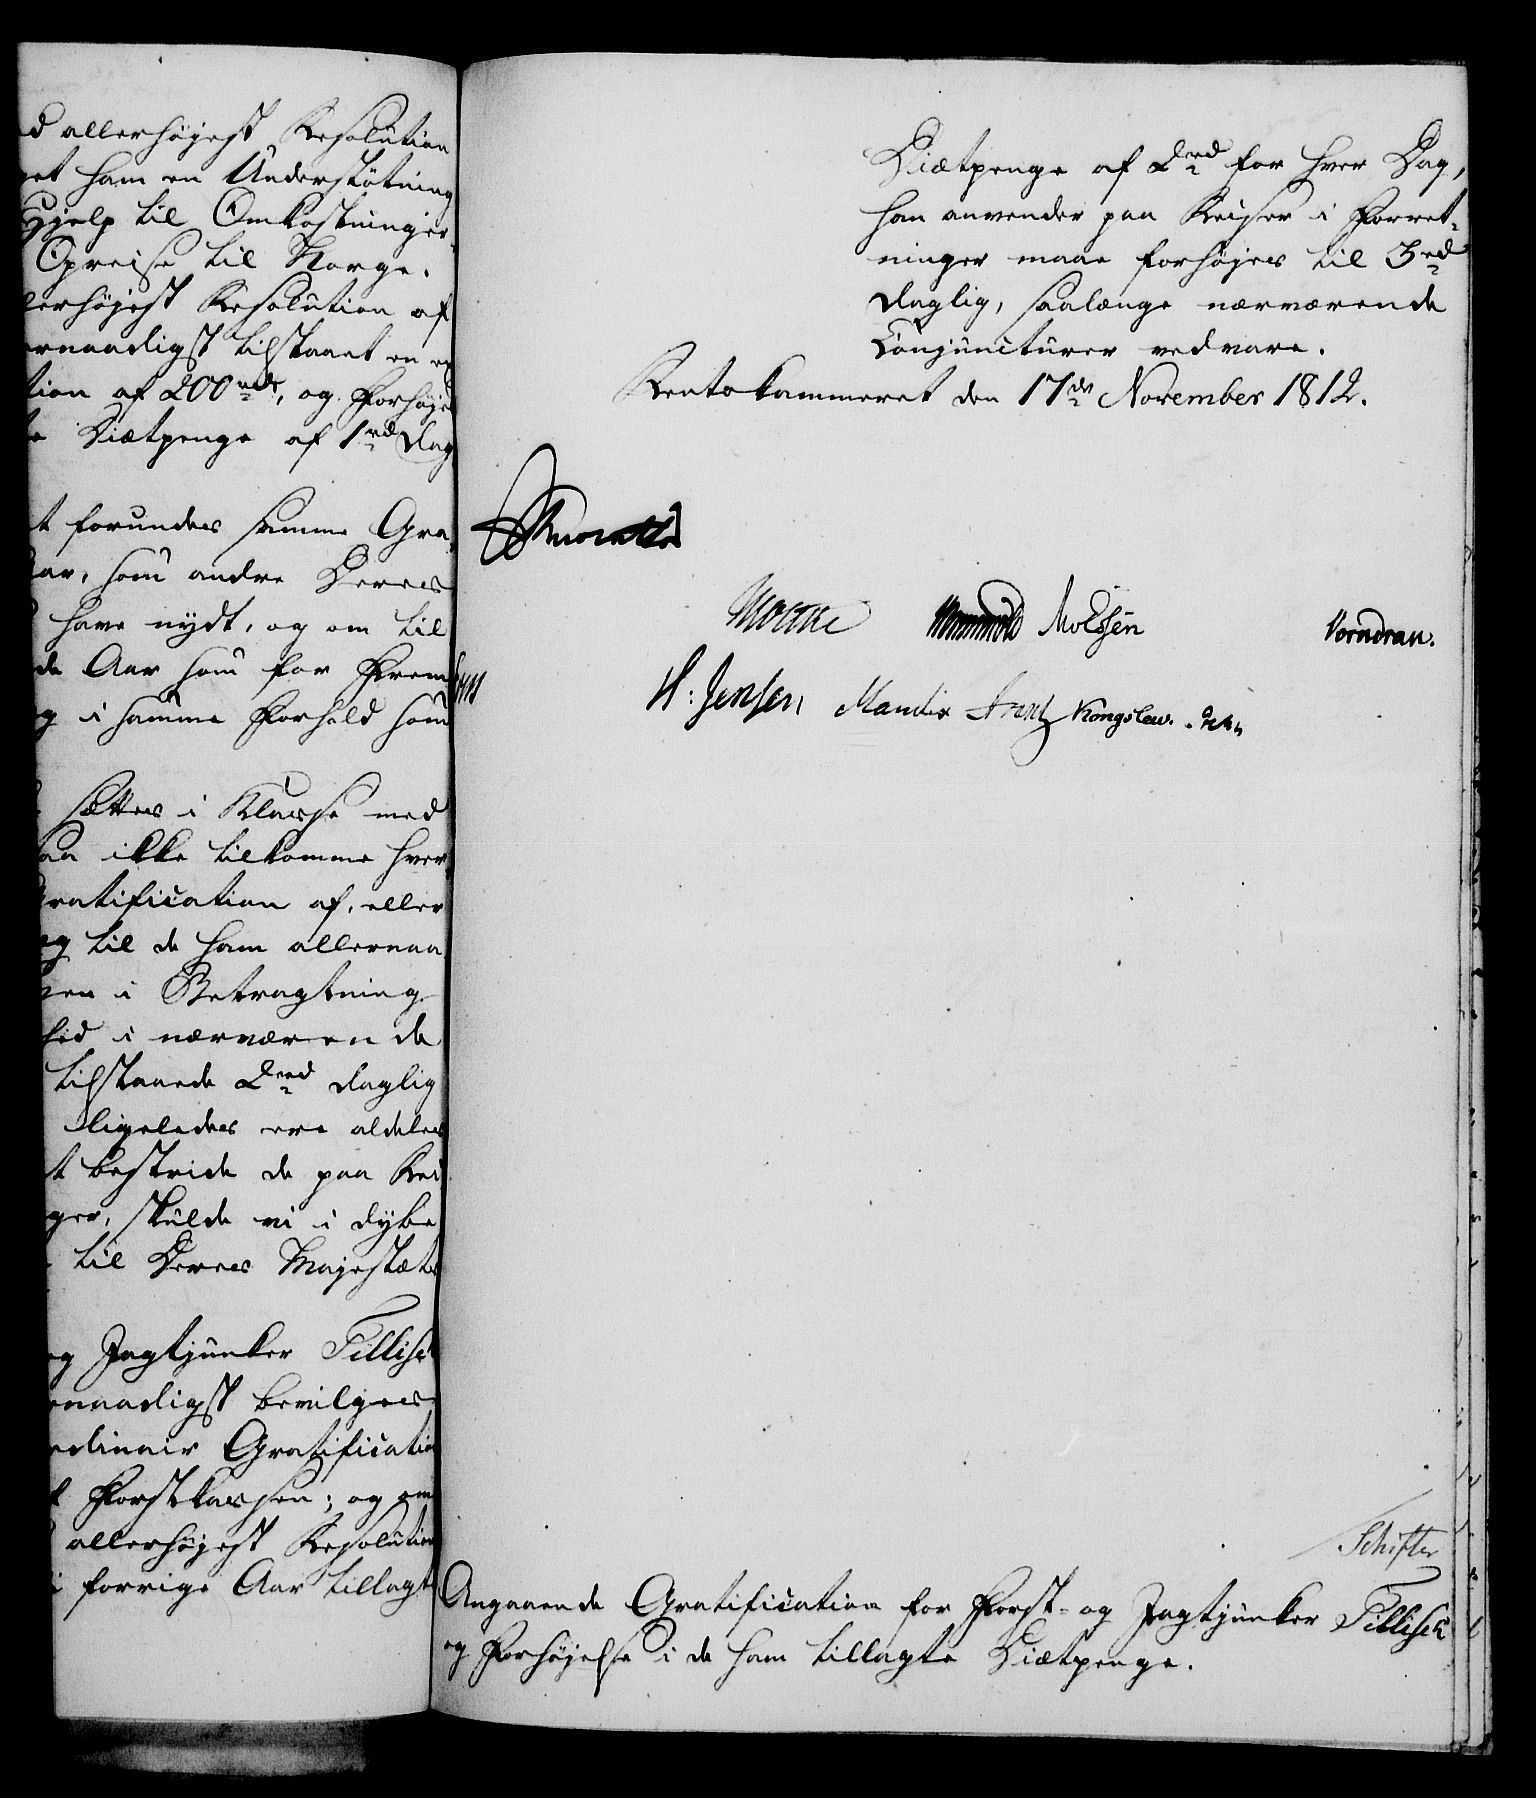 d allerhøjest Resolution
et ham en Understøtning
Hjelp til Omkostninger
Opreise til Norge.
lerhøjest Resolution af
ernaadigst tilstaaet en ex
tion af 200 rdr, og Forhøje
te Diætpenge af 1 rd Dag
t forundes samme Gra
aar, som andre Deres
have nydt, og om til
de Aar som for Frem
g i samme Forhold som
sættes i Klasse med
aa ikke tilkomme hver
Gratification af, eller
og til de ham allernaa
en i Betragtning
hed i nærværende
tilstaaede 2 rd daglig
ligeledes ere aldeles
t bestride de paa Rei
ger, skulde vi i dybe
til Deres Majestæts
og Jagtjunker Tillisch
ernaadigst bevilges
rdinair Gratification
Forstkassen; og om
allerhøjest Resolution
i forrige Aar tillagt
Diætpenge af 2 rd for hver Dag,
han anvender paa Reiser i Forret-
ninger maae forhøjes til 3 rd
daglig, saalænge nærværende
Conjuncturer vedvare.
Rentekammeret den 17de November 1812.
Knoth
Moltke Molssen Vorndran.
H: Jensen Manthe Arntz Kongslew.
Schifter
Angaaende Gratification for Forst- og Jagtjunker Tillisch
og Forhøjelse i de ham tillagte Diætpenge.